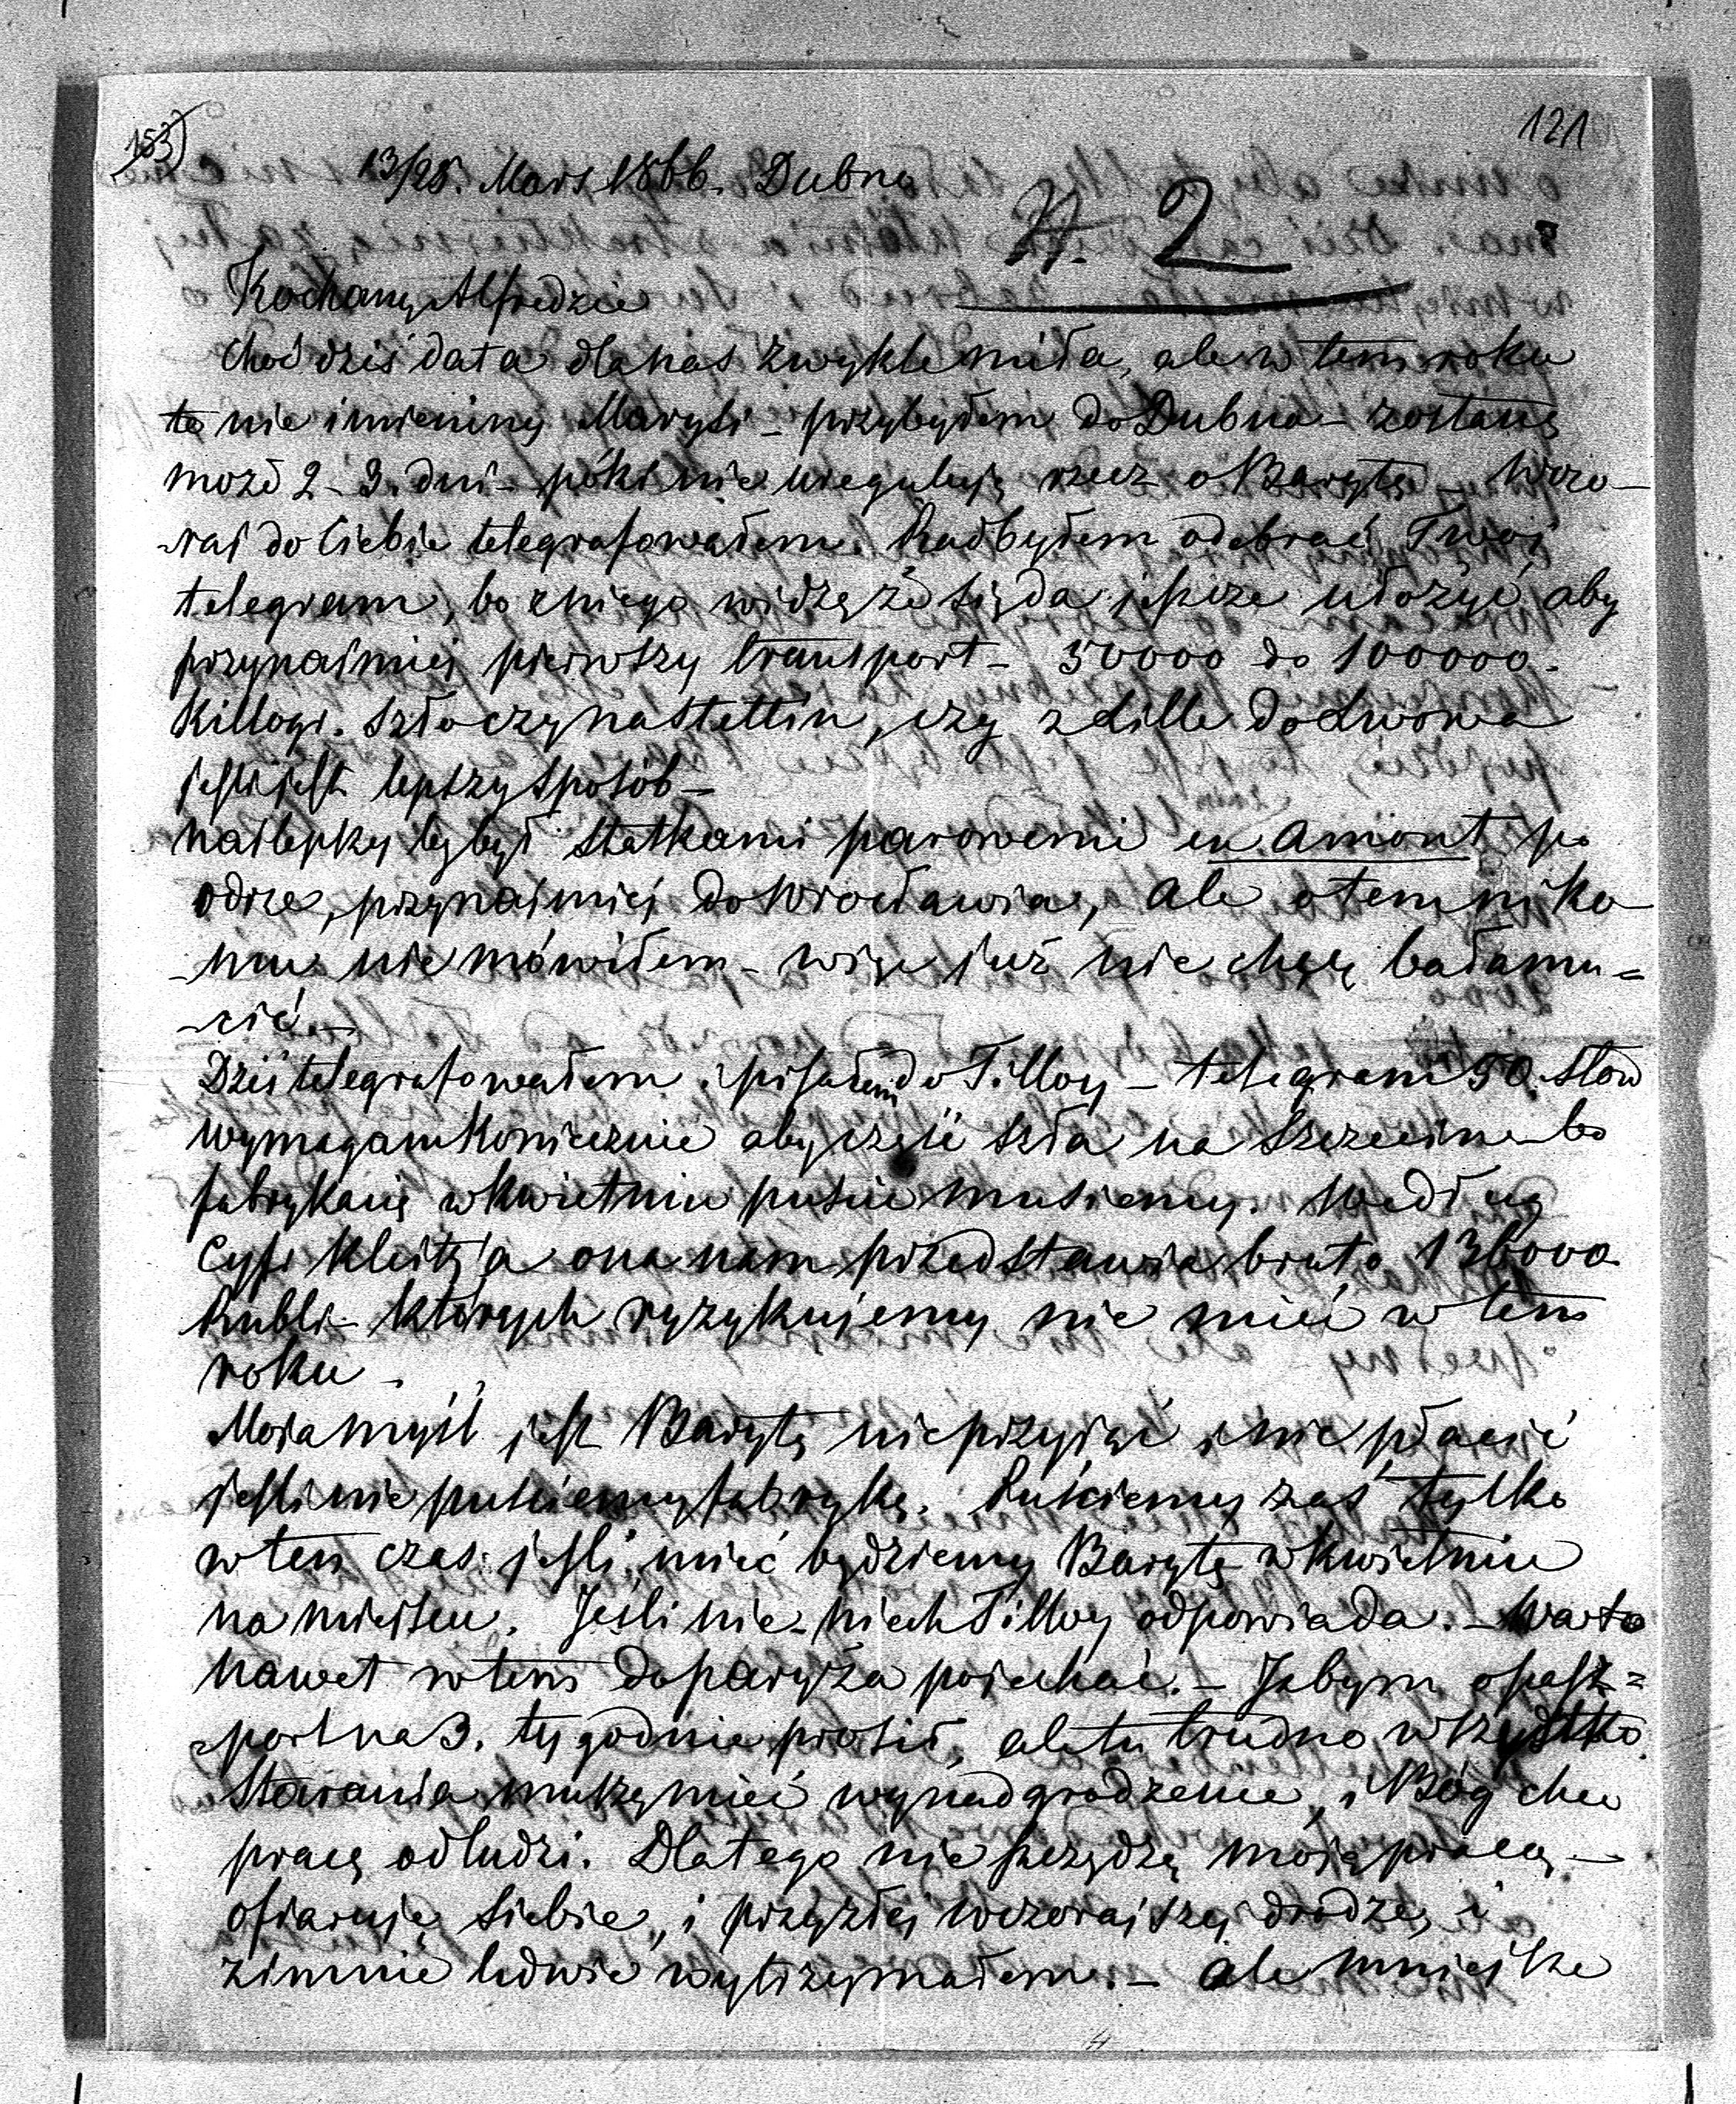 153)
121
13/25. Mars 1866. Dubno
N. 2
Kochany Alfredzie
Choć dziś data dla nas zwykle miła, ale w tem roku
te nie imieniny Marysi – przybyłem do Dubna – zostanę
może 2 – 3. dni – póki nie ureguluję rzecz o Barytę – Wczo-
-raj do Ciebie telegrafowałem. Radbyłem odebrać Twój
telegram, bo z niego widzę że się da jeszcze ułożyć, aby
przynajmniej pierwszy transport – 50000 do 100000.
Killogr. szło czy na Stettin, czy z Lille do Lwowa
jeśli jest lepszy sposób –
Najlepszy by był statkami parowemi en amont po
odrze, przynajmniej do Wrocławia, ale o tem niko-
-mu nie mówiłem – więc już nie chcę bałamu=
-cić. –
Dziś telegrafowałem i pisałem do Tilloy – telegram 50. słow
wymagam koniecznie aby część szła na Szczecin – bo
fabrykację w kwietniu puścić musiemy. Według
Cyfr Kleitz'a ona nam przedstawia bruto 136000
Rubli – których ryzykujemy nie mieć w tem
roku –
Moja myśl jest Barytę nieprzyjąć i nie płacić
jeśli nie puściemy fabrykę. Puściemy zaś tylko
w ten czas jeśli mieć będziemy Barytę w kwietniu
na miejscu. Jeśli nie – niech Tilloy odpowiada. – Warto
nawet w tem do paryża pojechać. – Jabym o pasz=
-port na 3. tygodnie prosił, ale tu trudno wszystko
Starania muszą mieć wynadgrodzenie, i Bóg chce
pracę od ludzi. Dlatego nie szczędzę moją pracę –
ofiaruję siebie, i przy złej wczorajszej drodze, i
zimnie ledwie wytrzymałem. – ale mniejsze